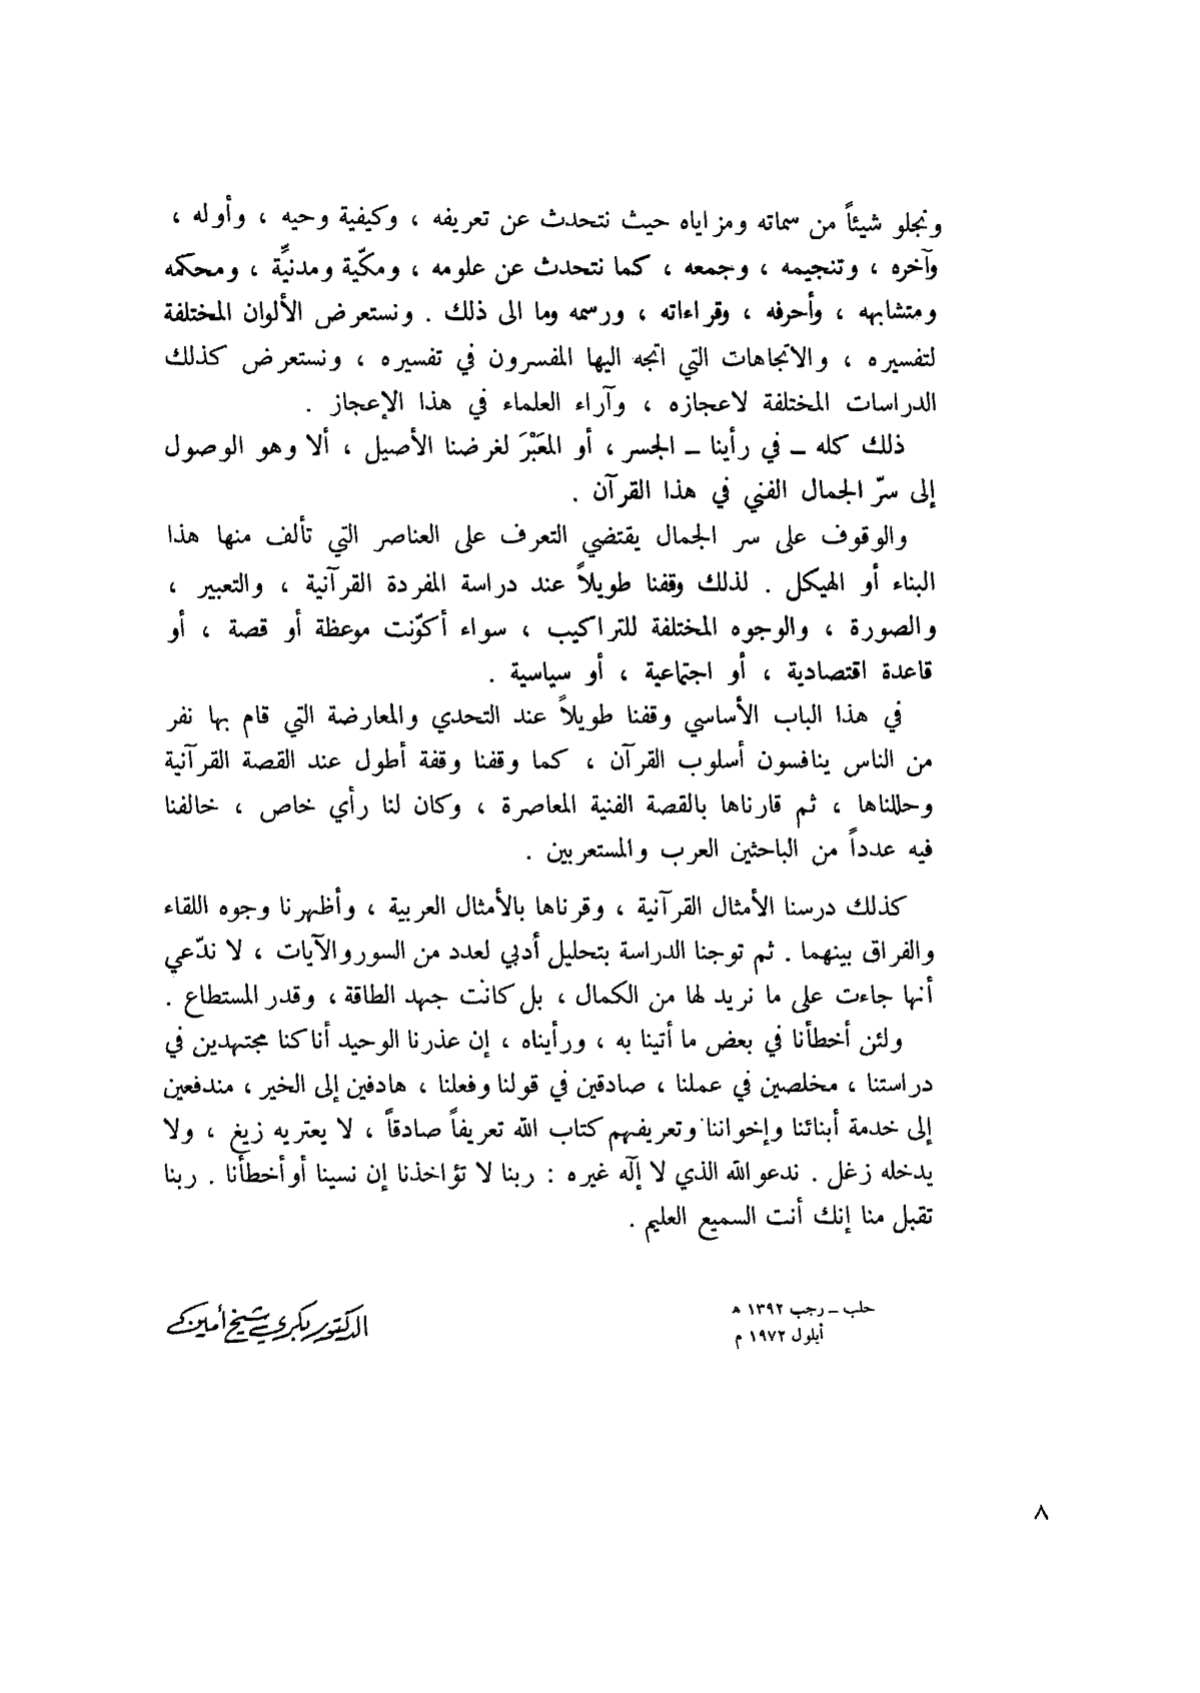 ونجلو شيئاً من سماته ومزاياه حيث نتحدث عن تعريفه ، وكيفية وحيه ، وأوله ،
وآخره ، وتنجيمه ، وجمعه ، كما نتحدث عن علومه ، ومكّية ومدنيِّة ، ومحكمه
ومتشابهه ، وأحرفه ، وقراءاته ، ورسمه وما الى ذلك . ونستعرض الألوان المختلفة
لتفسيره ، والاتجاهات التي اتجه اليها المفسرون في تفسيره ، ونستعرض كذلك
الدراسات المختلفة لاعجازه ، وآراء العلماء في هذا الإعجاز .
ذلك كله ــ في رأينا ــ الجسر ، أو المعَبْرَ لغرضنا الأصيل ، ألا وهو الوصول
إلى سرّ الجمال الفني في هذا القرآن .
والوقوف على سر الجمال يقتضي التعرف على العناصر التي تألف منها هذا
البناء أو الهيكل . لذلك وقفنا طويلاً عند دراسة المفردة القرآنية ، والتعبير ،
والصورة ، والوجوه المختلفة للتراكيب ، سواء أكوّنت موعظة أو قصة ، أو
قاعدة اقتصادية ، أو اجتماعية ، أو سياسية .
في هذا الباب الأساسي وقفنا طويلاً عند التحدي والمعارضة التي قام بها نفر
من الناس ينافسون أسلوب القرآن ، كما وقفنا وقفة أطول عند القصة القرآنية
وحللناها ، ثم قارناها بالقصة الفنية المعاصرة ، وكان لنا رأي خاص ، خالفنا
فيه عدداً من الباحثين العرب والمستعربين .
كذلك درسنا الأمثال القرآنية ، وقرناها بالأمثال العربية ، وأظهرنا وجوه اللقاء
والفراق بينهما . ثم توجنا الدراسة بتحليل أدبي لعدد من السور والآيات ، لا ندّعي
أنها جاءت على ما نريد لها من الكمال ، بل كانت جهد الطاقة ، وقدر المستطاع .
ولئن أخطأنا في بعض ما أتينا به ، ورأيناه ، إن عذرنا الوحيد أنا كنا مجتهدين في
دراستنا ، مخلصين في عملنا ، صادقين في قولنا وفعلنا ، هادفين إلى الخير ، مندفعين
إلى خدمة أبنائنا وإخواننا وتعريفهم كتاب الله تعريفاً صادقاً ، لا يعتريه زيغ ، ولا
يدخله زغل . ندعو الله الذي لا إلَه غيره : ربنا لا تؤاخذنا إن نسينا أو أخطأنا . ربنا
تقبل منا إنك أنت السميع العليم .
حلب ــ رجب ١٣٩٢ ه
أيلول ١٩٧٢ م
الدكتور بكري شيخ أمين
٨